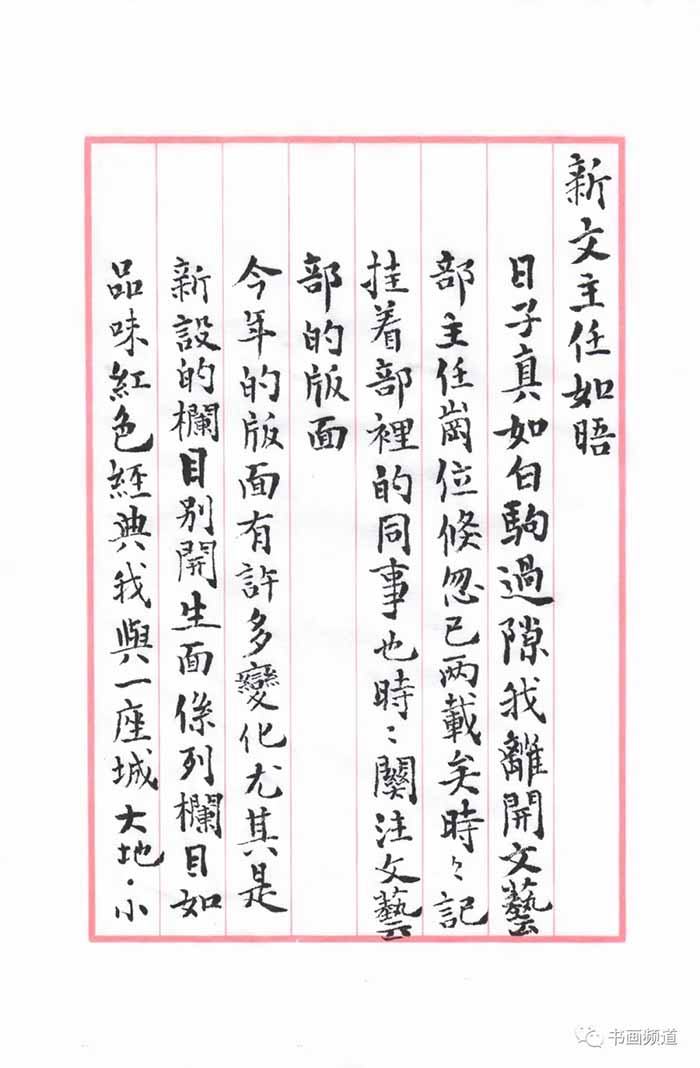 新文主任如晤
日子真如白駒過隙我離開文藝
部主任崗位倏忽已两載矣時〻記
挂着部裡的同事也時〻關注文藝
部的版面
今年的版面有許多變化尤其是
新設的欄目别開生面係列欄目如
品味紅色經典我與一座城大地·小
书画频道